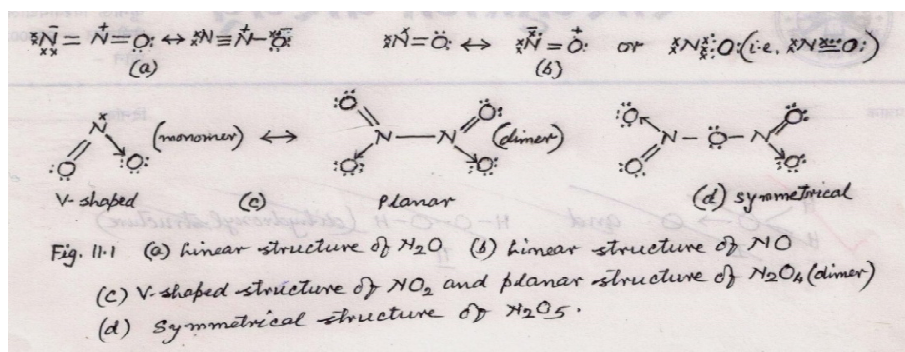 ẍN̄ = N⁺ = Ö: ↔ ẍN ≡ N⁺ – Ö: ẍN = Ö: ↔ ẍN̄ = Ö⁺: or ẍN:::O: (i.e. ẍN≡O:)
(a) (b)
:Ö N O: (monomer) ↔ :Ö N — N Ö: O: O: (dimer) :O N – Ö – N Ö: O O:
V-shaped (c) Planar (d) symmetrical
Fig. 11.1 (a) Linear structure of N₂O (b) Linear structure of NO
(c) V-shaped structure of NO₂ and planar structure of N₂O₄ (dimer)
(d) Symmetrical structure of N₂O₅.